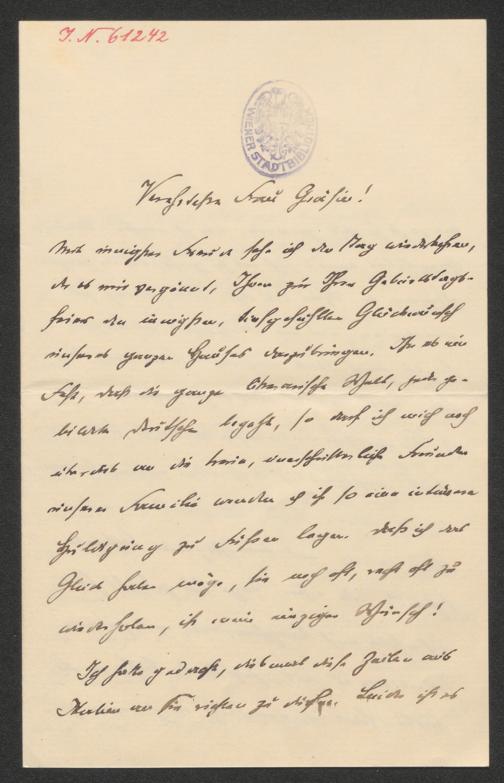 I. N. 61242
WIENER STADTBIBLIOTHEK
Verehrteste Frau Gräfin!
Mit inniger Freude sehe ich den Tag wiederkehren,
der es mir vergönnt, Ihnen zur Ihrer Geburtstags-
feier den innigsten, tiefgefühlten Glückwunsch
unseres ganzen Hauses darzubringen. Ist es ein
Fest, das die ganze literarische Welt, jeder ge-
bildete Deutsche begeht, so darf ich mich noch
überdies an die treue, unerschütterliche Freundin
unserer Familie wenden u. ihr so eine intimere
Huldigung zu Füßen legen. Daß ich das
Glück haben möge, sie noch oft, recht oft zu
wiederholen, ist mein einziger Wunsch!
Ich hatte gedacht, diesmal diese Zeilen aus
Italien an Sie richten zu dürfen. Leider ist es